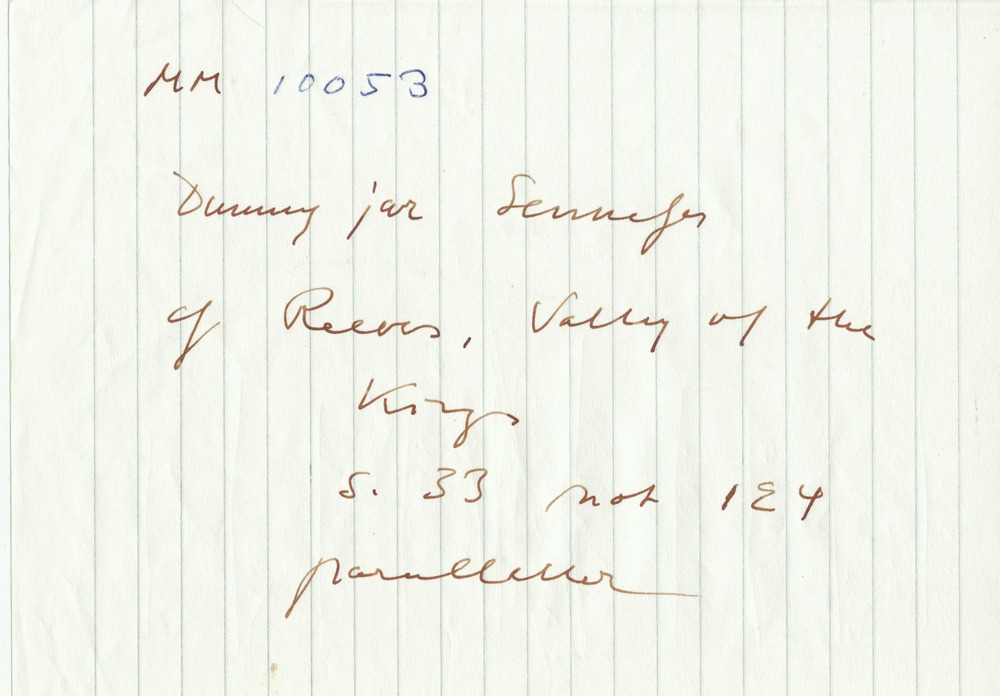 MM 10053
Dummy jar Sennefer
cf Reeves, Valley of the
Kings
s. 33 not 124
paralleller